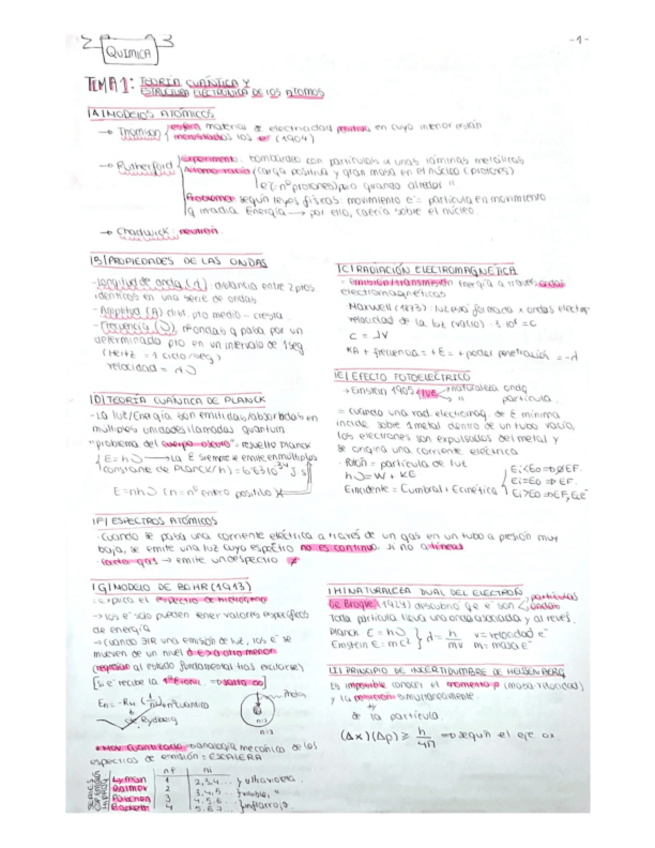 -1-
QUIMICA
TEMA 1: TEORÍA CUÁNTICA Y
ESTRUCTURA ELECTRÓNICA DE LOS ATOMOS
|A|MODELOS ATÓMICOS
→ Thomson esfera material de electricidad positiva en cuyo interior están
incrustados los e- (1904)
→ Rutherford experimento: bombardeo con partículas a unas láminas metálicas
carga positiva y gran masa en el núcleo (protones)
e- (= nº protones) girando alrededor "
Problema: según leyes físicas: movimiento e- = partícula en movimiento
q irradia Energía → por ello, caería sobre el núcleo.
→ Chadwick: neutrón.
|B|PROPIEDADES DE LAS ONDAS
- Longitud de onda (λ): distancia entre 2 ptos.
identicos en una serie de ondas
- Amplitud (A) dist. pto medio - cresta.
- Frecuencia (ν), nº ondas q pasa por un
determinado pto en un intervalo de 1 seg
(Hertz = 1 ciclo/seg)
velocidad = λν
|C|RADIACIÓN ELECTROMAGNÉTICA
= Emisión/transmisión Energía a través ondas
electromagnéticas
- Maxwell (1873): luz está formada x ondas electro
velocidad de la luz (vacío): 3·10⁸ = c
c = λν
+ frecuencia = + E = + poder penetración = -λ
|E|EFECTO FOTOELÉCTRICO
→ Einstein 1905 luz naturaleza onda
" partícula.
= cuando una rad. electromag. de E mínima
incide sobre 1 metal dentro de un tubo vacío
los electrones son expulsados del metal y
se origina una corriente eléctrica
- Fotón = partícula de luz
hν = W + KE
Eincidente = Eumbral + Ecinética
Ei<Eo ⇒ no EF.
Ei=Eo ⇒ EF.
Ei>Eo ⇒ EF, Ec e-
|D|TEORÍA CUÁNTICA DE PLANCK
- La luz/Energía son emitidas/absorbidas en
múltiplos unidades llamadas quantum
"problema del cuerpo oscuro" = resuelto Planck
E = hν → La E siempre se emite en múltiplos
(constante de PLANCK/h) = 6'63·10⁻³⁴ J·s
E = nhν (n = nº entero positivo)
|F|ESPECTROS ATÓMICOS
- Cuando se pasa una corriente eléctrica a través de un gas en un tubo a presión muy
baja, se emite una luz cuyo espectro no es continuo, si no a líneas
- Cada gas → emite un espectro ≠
|G|MODELO DE BOHR (1913)
- explica el espectro de hidrógeno
→ los e- sólo pueden tener valores específicos
de energía
→ cuando hay una emisión de luz, los e- se
mueven de un nivel de E > a otro menor
(regresan al estado fundamental tras excitarse)
En = -RH (1/n²) nº cuántico
Rydberg
Protón
n=2
n=3
analogía mecánica de los
espectros de emisión = ESCALERA
nf ni
Lyman 1 2,3,4... ultravioleta
Balmer 2 3,4,5... visible, "
Paschen 3 4,5,6...
Brackett 4 5,6,7... infrarrojo
|H|NATURALEZA DUAL DEL ELECTRÓN
De Broglie (1924) descubrió que e- son partículas
ondas
Toda partícula lleva una onda asociada y al revés.
Planck E = hν
Einstein E = mc²
λ = h/mv
v = velocidad e-
m = masa e-
|I|PRINCIPIO DE INCERTIDUMBRE DE HEISENBERG
Es imposible conocer el momento p (masa·velocidad)
y la posición simultáneamente
de la partícula.
(Δx)(Δp) ≥ h/4π ⇒ según el eje ox.